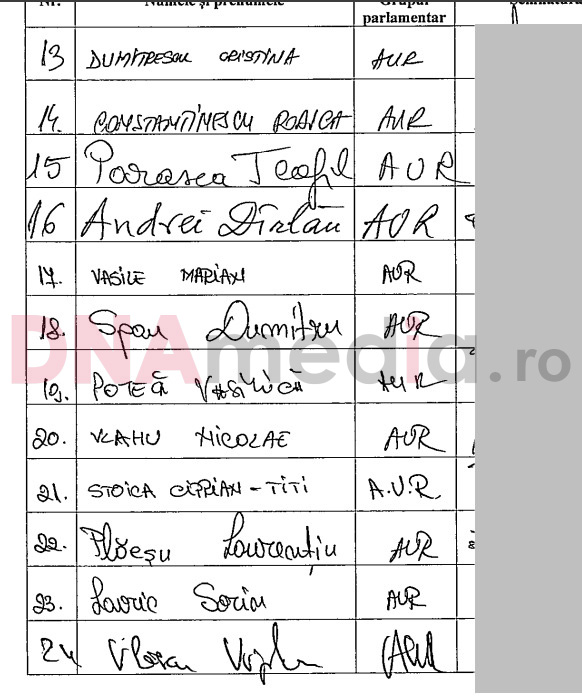 Nr. Numele și prenumele Grupul parlamentar Semnătura
13 DUMITRESCU CRISTINA AUR
14. CONSTANTINESCU RODICA AUR
15 Parasca Teofil AUR
16 Andrei Dîrlău AUR
17. VASILE MARIAN AUR
18. Span Dumitru AUR
DNAmedia.ro
19. POTECĂ VASILICĂ AUR
20. VLAHU NICOLAE AUR
21. STOICA CIPRIAN-TITI A.U.R.
22. Plăeșu Laurențiu AUR
23. Lavric Sorin AUR
24